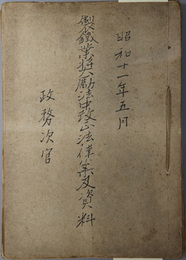 昭和十一年五月
製鐵業奨励法中改正法律案及資料
政務次官